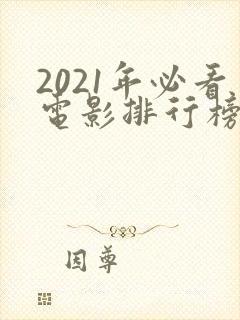 2021年必看
电影排行榜
因尊